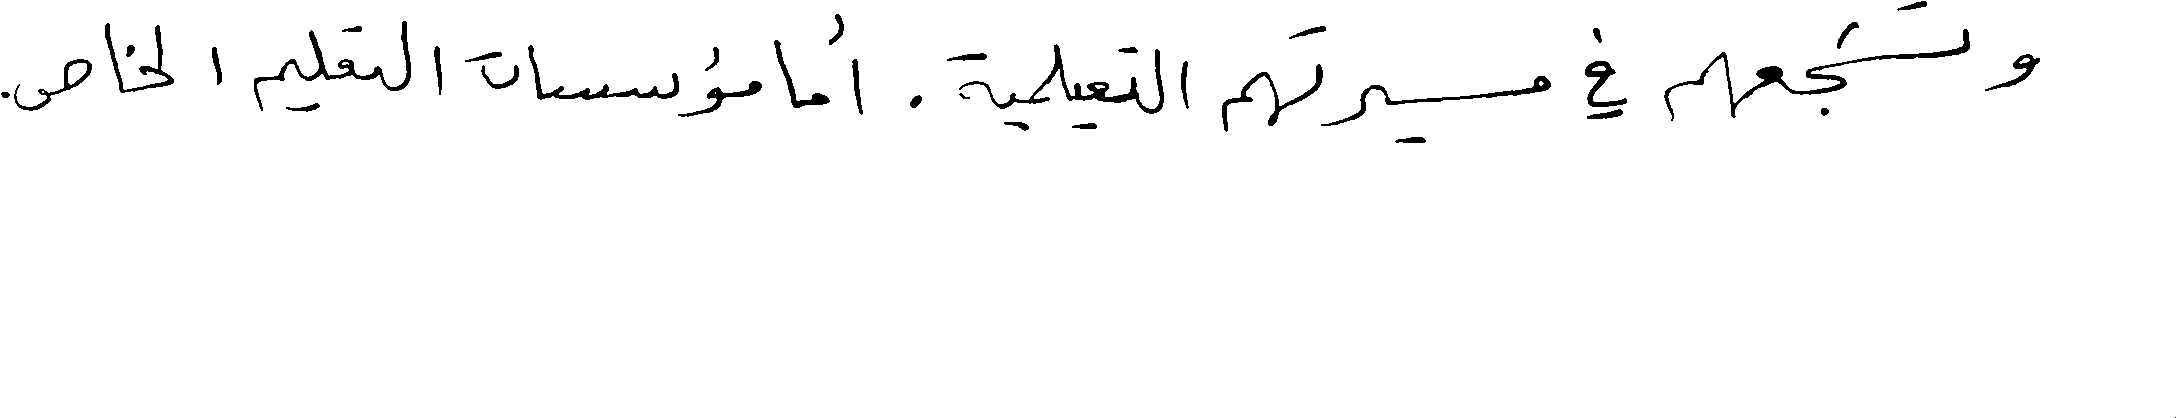 وتشجعهم في مسيرتهم التعليمية . أما مؤسسات التعليم الخاص.